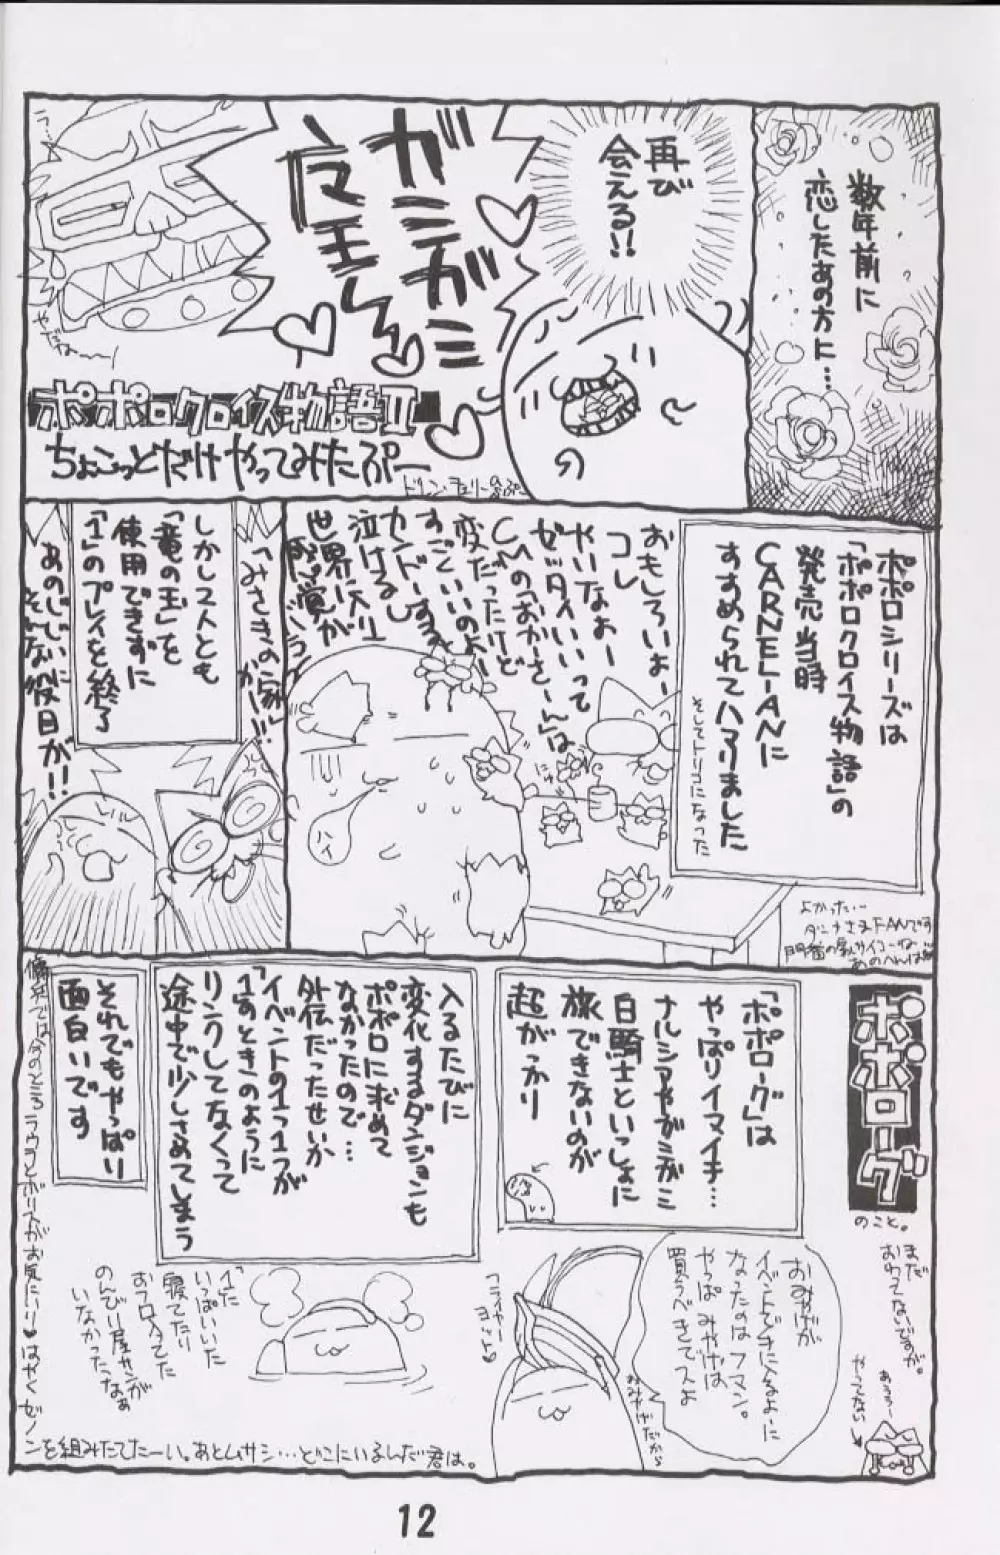 数年前に
恋したあの方に…
再び
会える!!
ガミガミ
魔王さん
ラ…
やだねー
ポポロクロイス物語II
ちょこっとだけやってみたぷー
ポポロシリーズは
「ポポロクロイス物語」の
発売当時
CARNELIANに
すすめられてハマりました
そしてトリコになった
よかった…
おもしろいよー
コレ
やいなよー
ゼッタイいいって
CMの「おかーさーん」は
変だったけど
すごくいいのよー
カンドーするよ
泣けるし
世界に入り
ハイ
「みさきの家」
がー!!!
しかしスとも
「竜の玉」を
使用できずに
「1」のプレイを終了
あのじじいに
そんな役目が!!
ポポローグ
のこと。
まだ
おわってないですが。
あうぅー
やってない
「ポポローグ」は
やっぱりイマイチ…
ナルシアやガミガミ
白騎士といっしょに
旅できないのが
超がっかり
入るたびに
変化するダンジョンも
ポポロに求めて
なかったので…
外伝だったせいか
「イベントの1つ1つが
1」のときのように
リンクしてなくって
途中で少しさめてしまう
それでもやっぱり
面白いです
おみやげが
イベントで手に入るよーに
なったのはフマン。
やっぱみやげは
買うべきでスよ
おみやげだから
「1」に
いっぱいいた
寝てたり
おフロ入ってた
のんびり屋サンが
いなかったなぁ
傭兵では今のところラウラとボリスがお気にいり♥はやくゼノンを組みたてたーい。あとムサシ…どこにいるんだ君は。
12